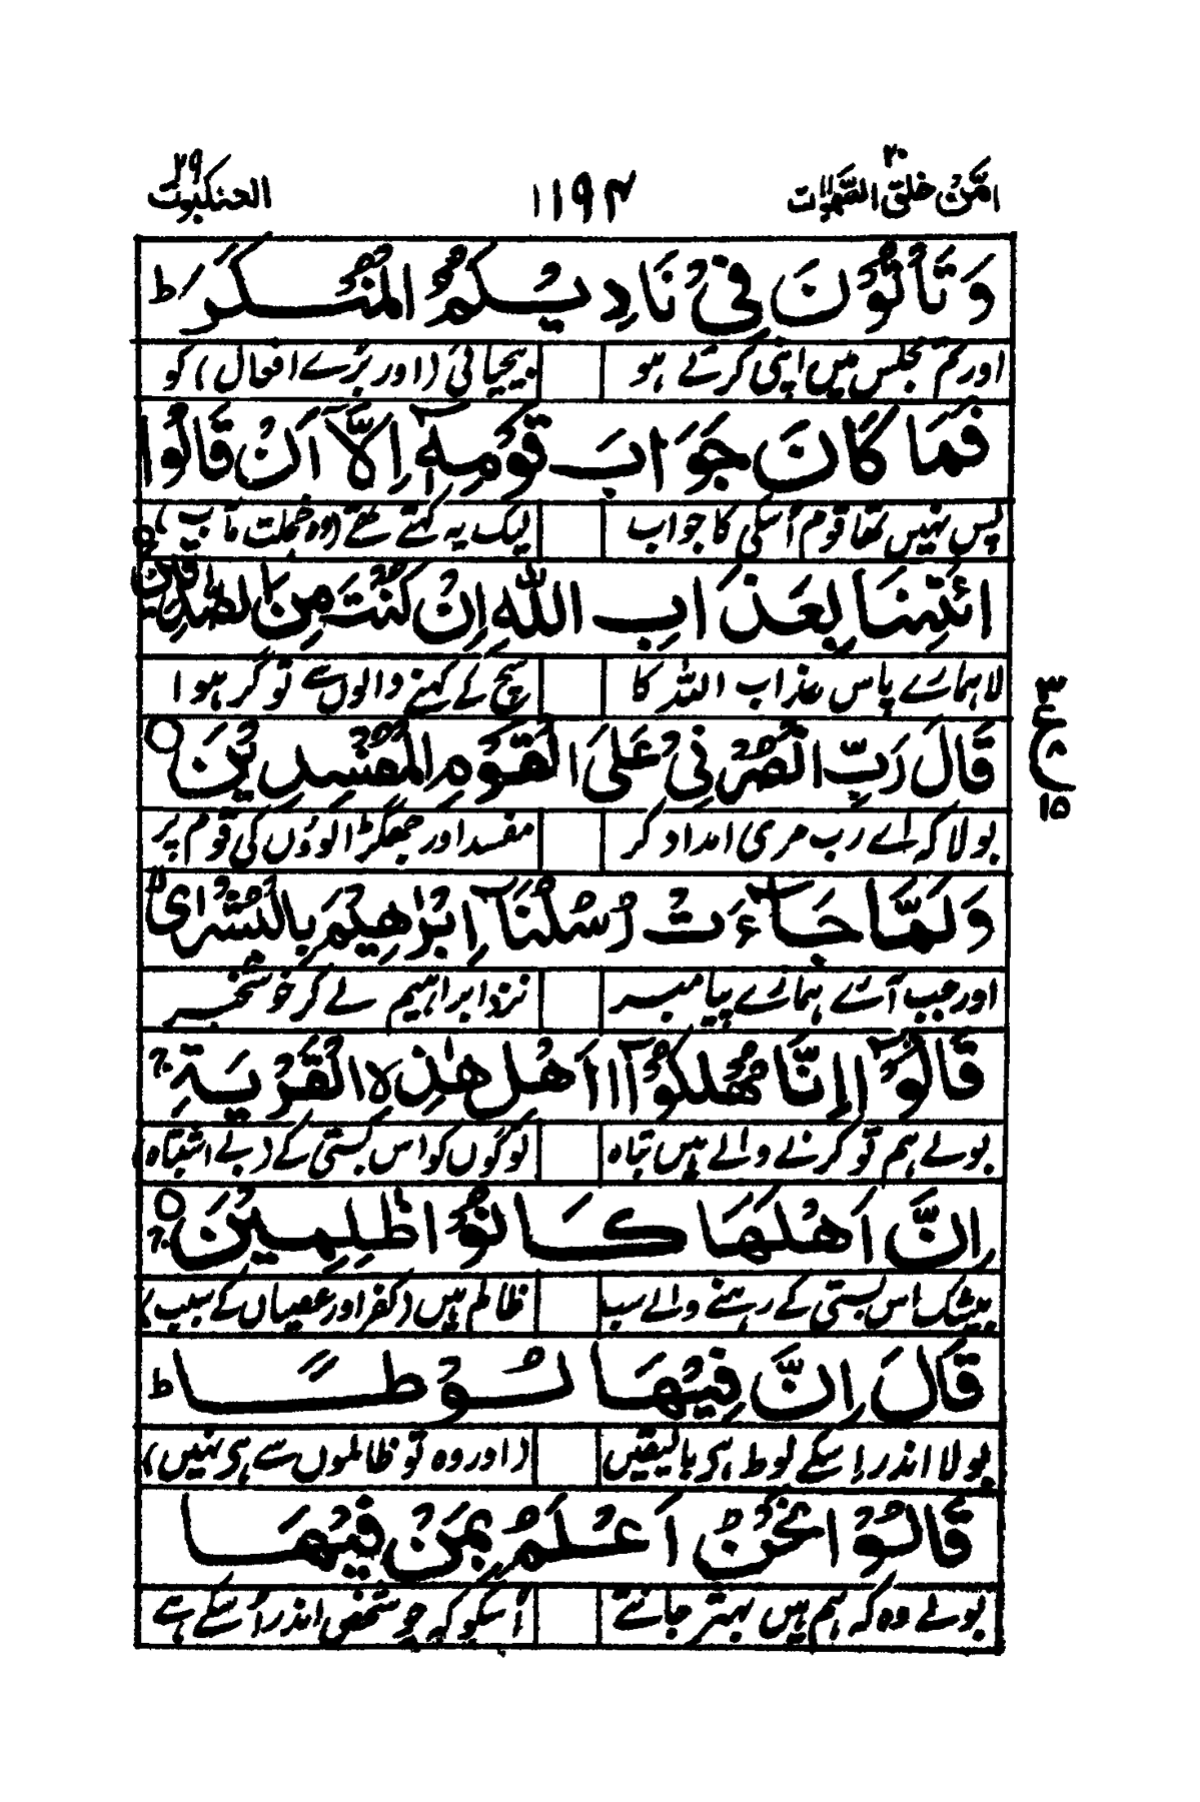 امّن خلق السّمٰوٰت ۲۰ ۱۱۹۴ العنكبوت ۲۹
وَتَأْتُوْنَ فِیْ نَادِیْكُمُ الْمُنْكَرَ ؕ
اور تم مجلس میں اپنی کرتے ہو بیحیائی (اور بُرے افعال) کو
فَمَا كَانَ جَوَابَ قَوْمِهٖۤ اِلَّاۤ اَنْ قَالُوا
پس نہیں تھا قوم اُسکی کا جواب لیک یہ کہتے تھے (وہ جہلت مآب)
ائْتِنَا بِعَذَابِ اللّٰهِ اِنْ كُنْتَ مِنَ الصّٰدِقِیْنَ ○
لا ہمارے پاس عذاب اللہ کا سچ کے کہنے والوں سے تو گر ہوا
قَالَ رَبِّ انْصُرْنِیْ عَلَی الْقَوْمِ الْمُفْسِدِیْنَ ○
۳ ع ۸ ۱۵
بولا کہ اے رب مری امداد کر مفسد اور جھگڑالوؤں کی قوم پر
وَلَمَّا جَآءَتْ رُسُلُنَاۤ اِبْرٰهِیْمَ بِالْبُشْرٰی ۙ
اور جب آے ہمارے پیامبر نزد ابراہیم لے کر خوشخبر
قَالُوْۤا اِنَّا مُهْلِكُوْۤا اَهْلِ هٰذِهِ الْقَرْیَةِ ۚ
بولے ہم تو کرنے والے ہیں تباہ لوگوں کو اس بستی کے (بے اشتباہ)
اِنَّ اَهْلَهَا كَانُوْا ظٰلِمِیْنَ ○ ۚ
بیشک اس بستی کے رہنے والے سب ظالم ہیں (کفر اور عصیاں کے سبب)
قَالَ اِنَّ فِیْهَا لُوْطًا ؕ
بولا اندر اسکے لوط ہی بالیقیں (اور وہ تو ظالموں سے ہی نہیں)
قَالُوْا نَحْنُ اَعْلَمُ بِمَنْ فِیْهَا
بولے وہ کہ ہم ہیں بہتر جانتے اُسکو کہ جو شخص اندر اُسکے ہے